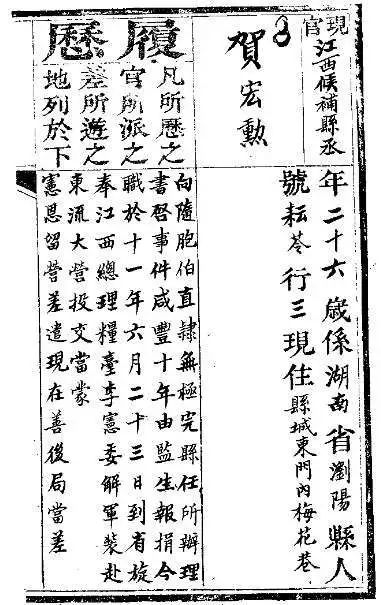 現官
江西候補縣丞
賀宏勳
年二十六歲係湖南省瀏陽縣人
號耘苓行三現住縣城東門內梅花巷
履歷
凡所歷之
官所派之
差所遊之
地列於下
向隨胞伯直隸無極完縣任所辦理
書啓事件咸豐十年由監生報捐今
職於十一年六月二十三日到省旋
奉江西總理糧臺李憲委解軍裝赴
東流大營投交當蒙
憲恩留營差遣現在善後局當差